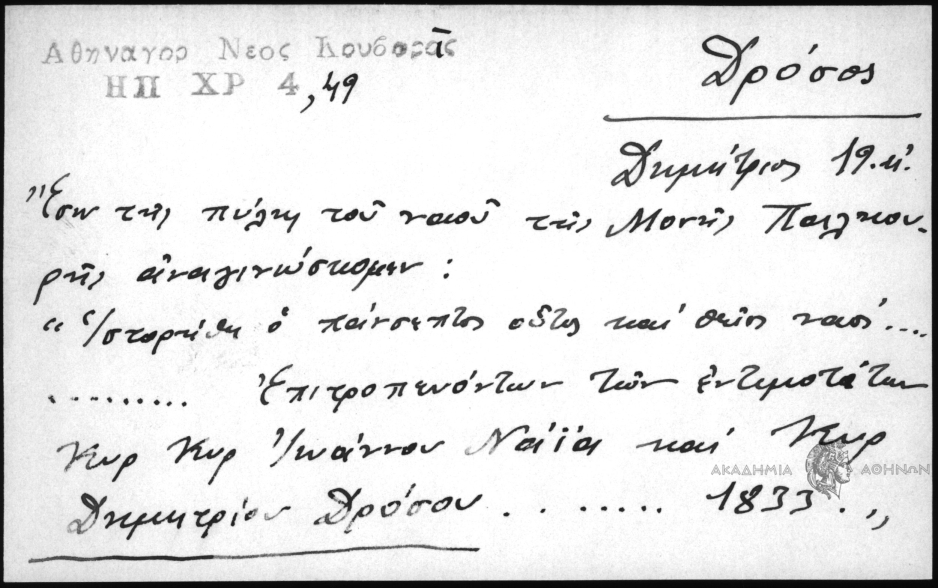 Αθηναγορ Νεος Κουβαρᾶς
ΗΠ ΧΡ 4, 49
Δρόσος
Δημήτριος 19.αι.
"Έσω τῆς πύλης τοῦ ναοῦ τῆς Μονῆς Παλιου-
ρῆς ἀναγινώσκομεν:
"Ἱστορήθη ὁ πάνσεπτος οὗτος καί θεῖος ναός....
......... Ἐπιτροπευόντων τῶν ἐντιμοτάτων
Κυρ Κυρ Ἰωάννου Νάϊα καί Κυρ
Δημητρίου Δρόσου ........ 1833.,,
ΑΚΑΔΗΜΙΑ ΑΘΗΝΩΝ